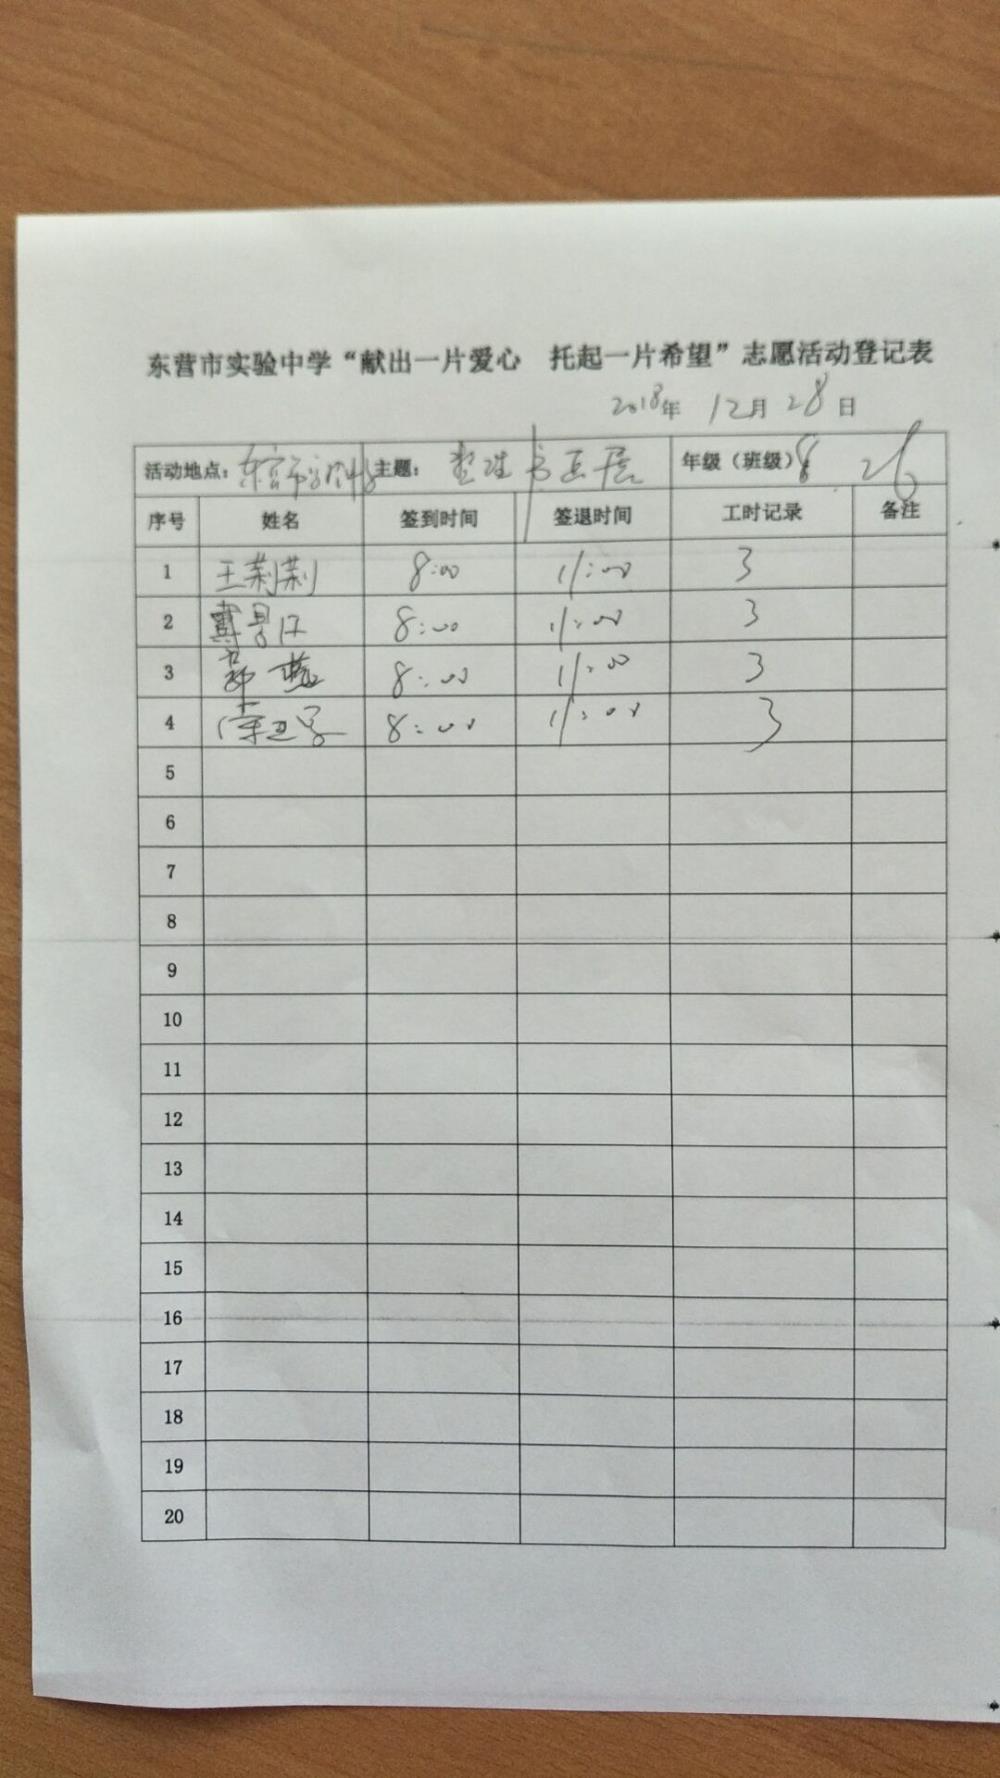 东营市实验中学“献出一片爱心 托起一片希望”志愿活动登记表
2018年 12月28日
活动地点： 东营市 主题： 整理书 年级（班级）8 26
序号 姓名 签到时间 签退时间 工时记录 备注
1 王荆荆 8:00 11:00 3
2 8:00 11:00 3
3 8:00 11:00 3
4 8:00 11:00 3
5
6
7
8
9
10
11
12
13
14
15
16
17
18
19
20